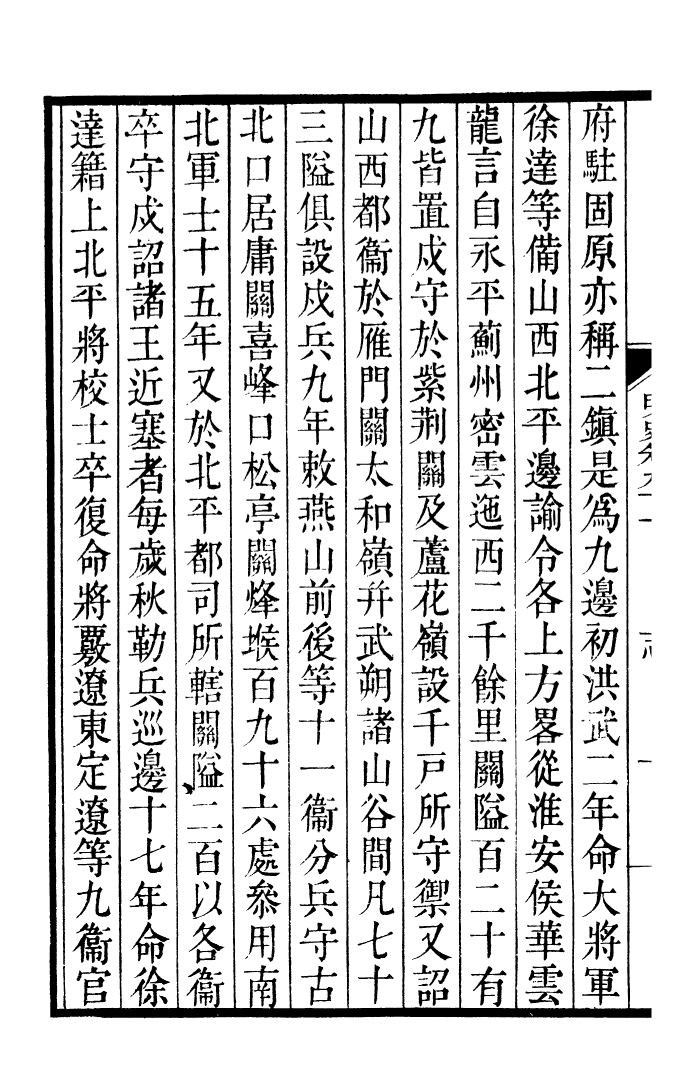 府駐固原亦稱二鎮是爲九邊初洪武二年命大將軍
徐達等備山西北平邊諭令各上方畧從淮安侯華雲
龍言自永平薊州密雲迤西二千餘里關隘百二十有
九皆置戍守於紫荆關及蘆花嶺設千戸所守禦又詔
山西都衞於雁門關太和嶺幷武朔諸山谷間凡七十
三隘俱設戍兵九年敕燕山前後等十一衞分兵守古
北口居庸關喜峰口松亭關烽堠百九十六處叅用南
北軍士十五年又於北平都司所轄關隘二百以各衞
卒守戍詔諸王近塞者每歲秋勒兵巡邊十七年命徐
達籍上北平將校士卒復命將覈遼東定遼等九衞官
志